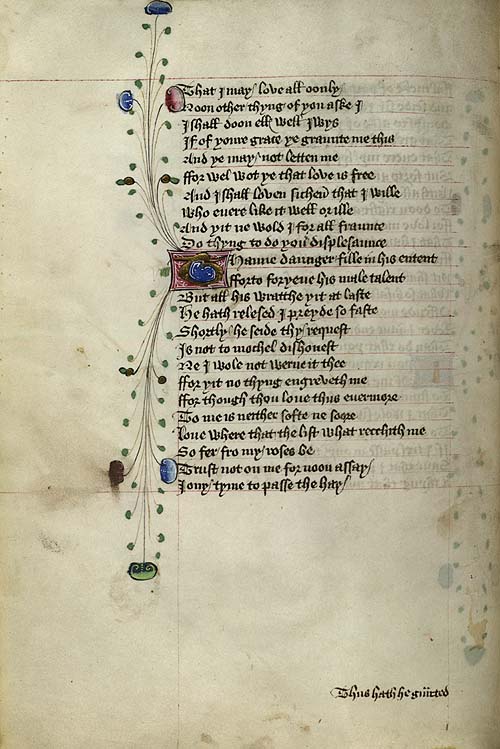 That I may love all oonly
Noon other thyng of you aske I
I shall doon ell well Iwys
If of youre grace ye graunte me this
And ye may not letten me
ffor wel wot ye that love is free
And I shall loven sichen that I wille
Who euere like it well or ille
And yit ne wold I for all fraunce
Do thyng to do you displesaunce
Thanne daunger fille in his entent
fforto foryeue his male talent
But all his wratthe yit at laste
He hath relesed I preyde so faste
Shortly he seide thy request
Is not to mochel dishonest
Ne I wole not werne it thee
ffor yit no thyng engreveth me
ffor though thou loue thus evermore
To me is neither softe ne soore
Loue where that the list what recchith me
So fer fro my roses be
Trust not on me for noon assay
I ony tyme to passe the hay
Thus hath he gūited